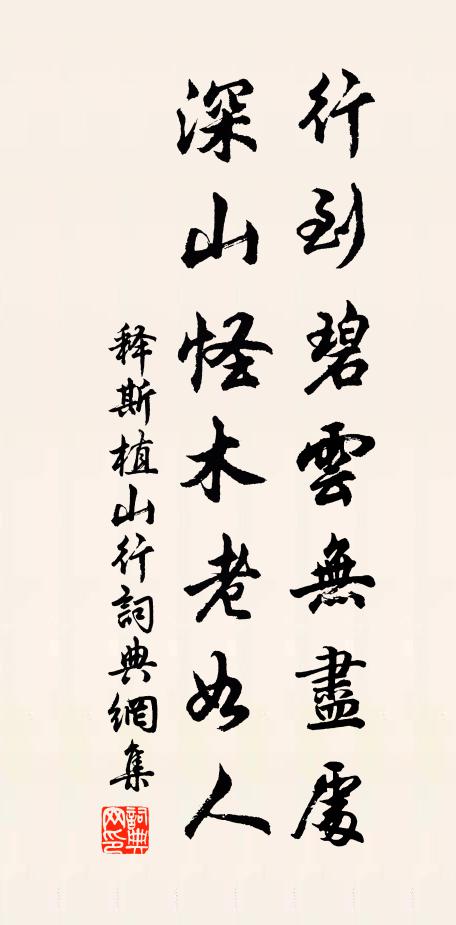 行到碧雲無盡處
深山怪木老如人
释斯植山行詞典網集
詞典网印